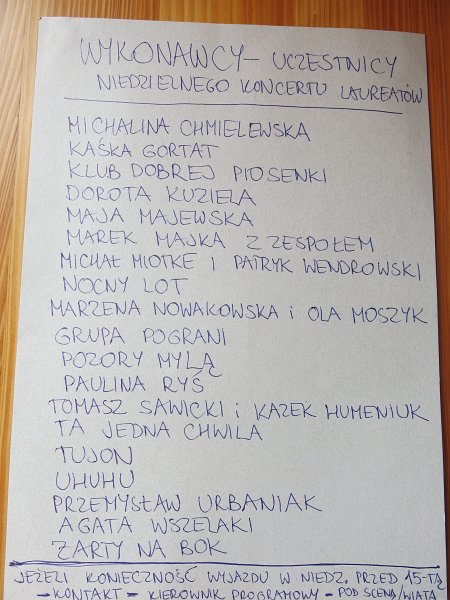 WYKONAWCY – UCZESTNICY
NIEDZIELNEGO KONCERTU LAUREATÓW
MICHALINA CHMIELEWSKA
KAŚKA GORTAT
KLUB DOBREJ PIOSENKI
DOROTA KUZIELA
MAJA MAJEWSKA
MAREK MAJKA Z ZESPOŁEM
MICHAŁ MIOTKE I PATRYK WENDROWSKI
NOCNY LOT
MARZENA NOWAKOWSKA i OLA MOSZYK
GRUPA POGRANI
POZORY MYLĄ
PAULINA RYŚ
TOMASZ SAWICKI i KAZEK HUMENIUK
TA JEDNA CHWILA
TUJON
UHUHU
PRZEMYSŁAW URBANIAK
AGATA WSZELAKI
ŻARTY NA BOK
JEŻELI KONIECZNOŚĆ WYJAZDU W NIEDZ. PRZED 15-TĄ
– KONTAKT – KIEROWNIK PROGRAMOWY – POD SCENĄ/WIATA